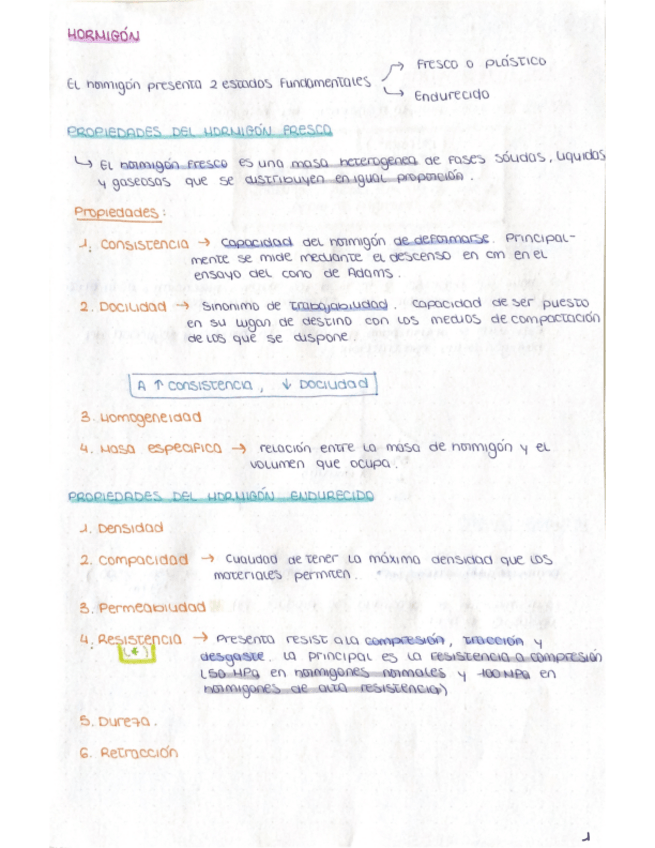 HORMIGÓN
El hormigón presenta 2 estados fundamentales → Fresco o plástico
↳ Endurecido
PROPIEDADES DEL HORMIGÓN FRESCO
↳ El hormigón fresco es una masa heterogenea de fases sólidas, líquidas
y gaseosas que se distribuyen en igual proporción.
Propiedades:
1. Consistencia → Capacidad del hormigón de deformarse. Principal-
mente se mide mediante el descenso en cm en el
ensayo del cono de Adams.
2. Docilidad → Sinonimo de trabajabilidad. Capacidad de ser puesto
en su lugar de destino con los medios de compactación
de los que se dispone.
A ↑ consistencia, ↓ Docilidad
3. Homogeneidad
4. Masa especifica → relación entre la masa de hormigón y el
volumen que ocupa.
PROPIEDADES DEL HORMIGÓN ENDURECIDO
1. Densidad
2. Compacidad → Cualidad de tener la máxima densidad que los
materiales permiten.
3. Permeabilidad
4. Resistencia → Presenta resist a la compresión, tracción y
(*) desgaste. La principal es la resistencia a compresión
(50 MPa en hormigones normales y 100 MPa en
hormigones de alta resistencia)
5. Dureza.
6. Retracción
1